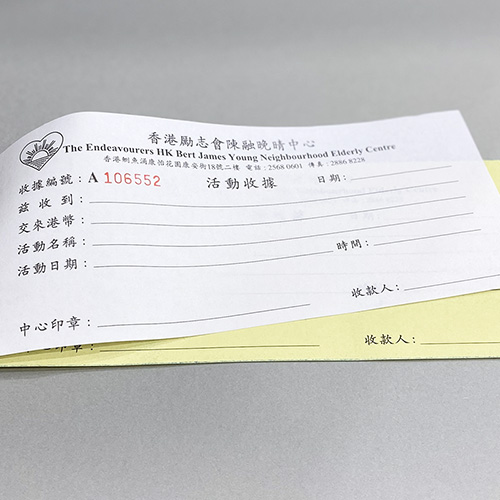 香港勵志會陳融晚晴中心
The Endeavourers HK Bert James Young Neighbourhood Elderly Centre
香港鰂魚涌康怡花園康安街18號二樓 電話:2568 0601 傳真:2886 8228
收據編號:A 106552 活動收據 日期:
茲收到:
交來港幣:
活動名稱: 時間:
活動日期:
收款人:
中心印章:
印章: 收款人: